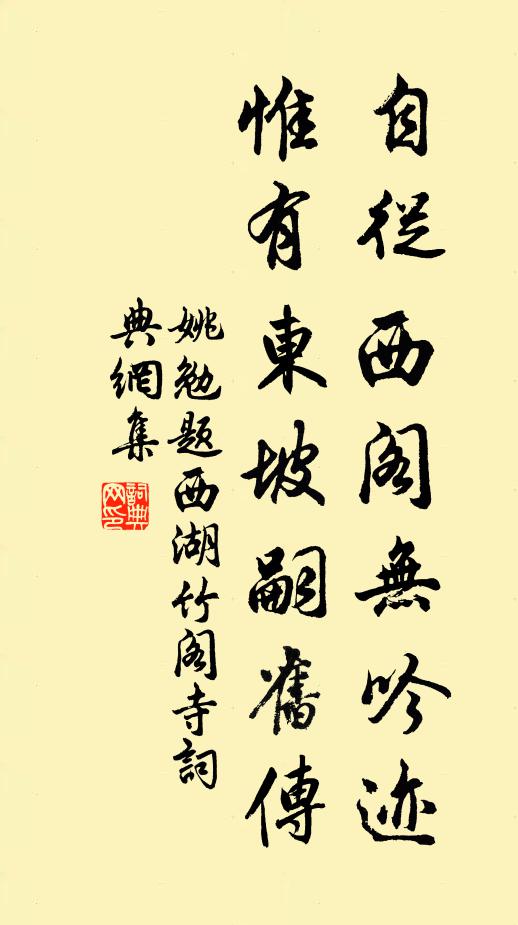 自從西阁無吟迹
惟有東坡嗣舊傳
姚勉题西湖竹阁寺詞
典網集
詞典网印